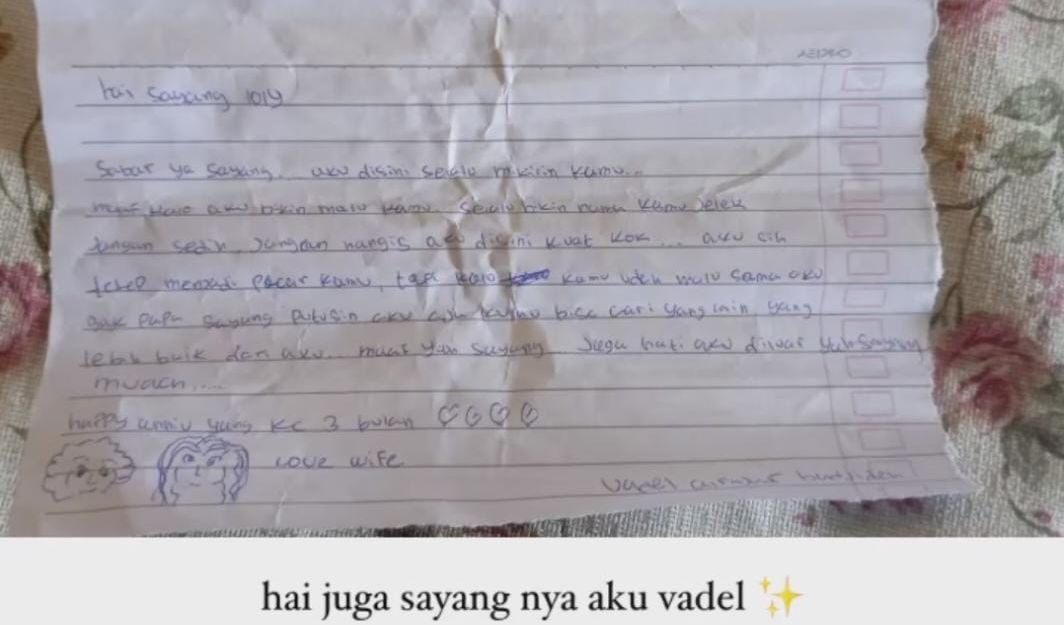 hai sayang lolly
Sabar ya sayang.. aku disini selalu mikirin kamu...
maaf kalo aku bikin malu kamu. Selalu bikin nama kamu jelek
Jangan sedih, Jangan nangis aku disini kuat kok... aku sih
tetep menjadi pacar kamu, tapi kalo kamu udah malu sama aku
gak papa sayang putusin aku kamu bisa cari yang lain yang
lebih baik dari aku.. maaf yah sayang Jaga hati aku diluar yah sayang
muach.....
happy anniv yang ke 3 bulan
love wife
hai juga sayang nya aku vadel